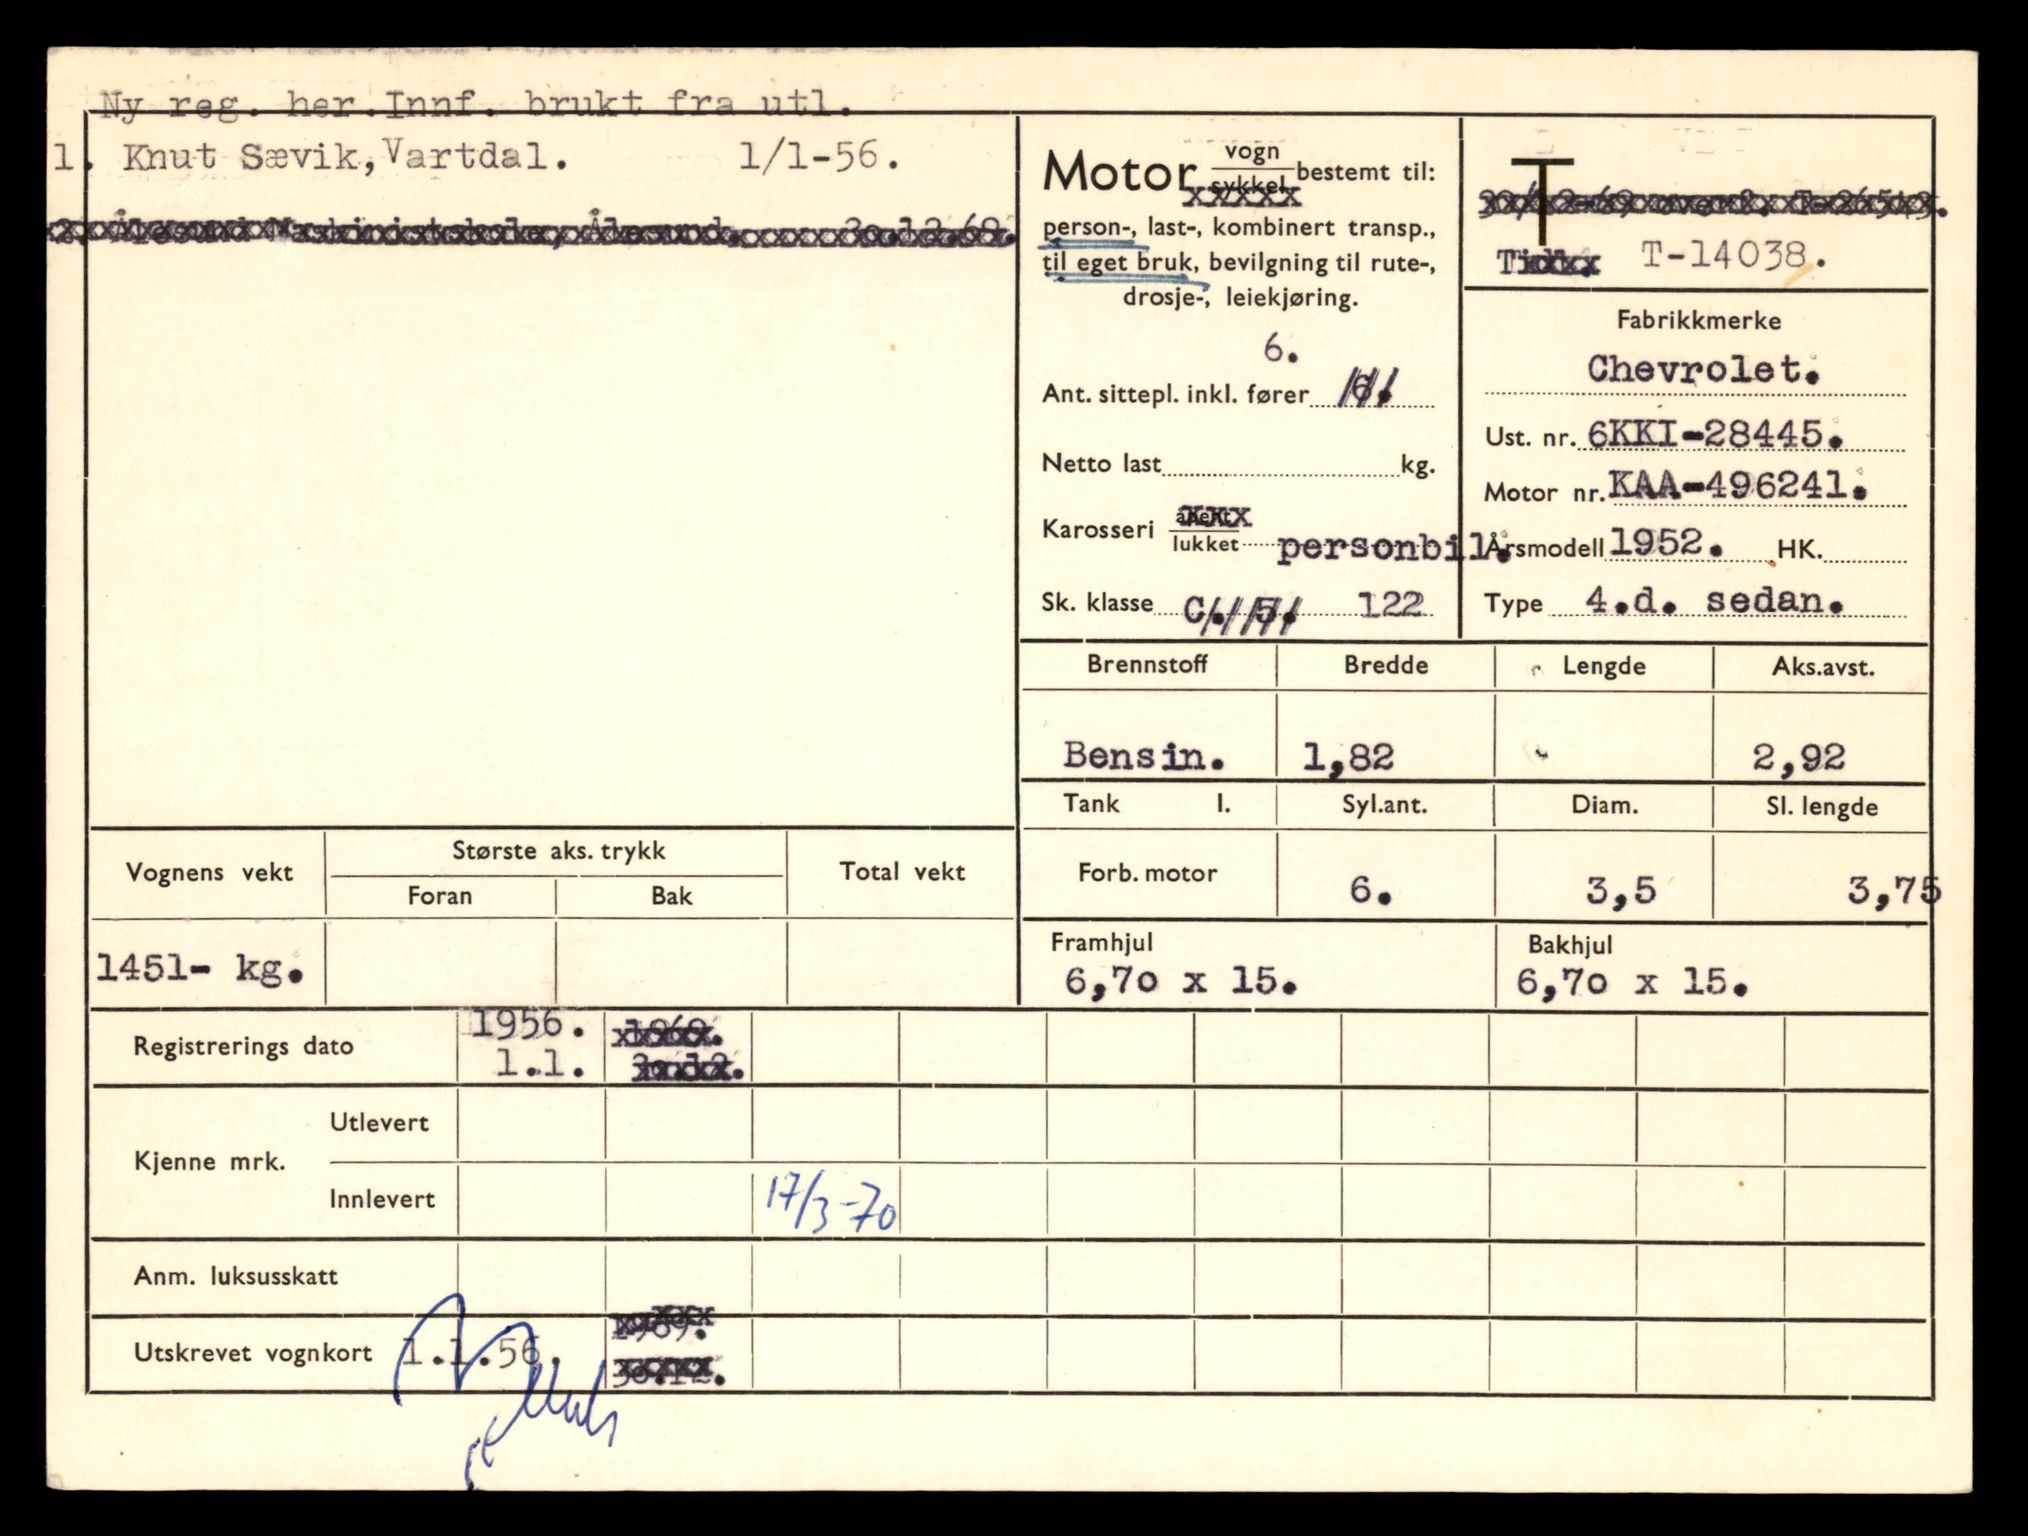 Ny reg. her.Innf. brukt fra utl.
1. Knut Sævik,Vartdal. 1/1-56.
2. Ålesund Maskinistskole, Ålesund. 30.12.68.
Motor vogn
sykkel bestemt til:
person-, last-, kombinert transp.,
til eget bruk, bevilgning til rute-,
drosje-, leiekjøring.
6.
Ant. sittepl. inkl. fører 6.
Netto last kg.
Karosseri åpent
lukket personbil.
Sk. klasse C. 5. 122
T
30/12-69 overf. T-26519.
T-14038.
Fabrikkmerke
Chevrolet.
Ust. nr. 6KKI-28445.
Motor nr. KAA-496241.
Årsmodell 1952. HK.
Type 4.d. sedan.
Brennstoff Bredde Lengde Aks.avst.
Bensin. 1,82 2,92
Tank l. Syl.ant. Diam. Sl. lengde
Forb. motor 6. 3,5 3,75
Framhjul Bakhjul
6,70 x 15. 6,70 x 15.
Vognens vekt Største aks. trykk Total vekt
Foran Bak
1451- kg.
Registrerings dato 1956. 1969.
1.1. 30.12.
Kjenne mrk. Utlevert
Innlevert 17/3-70
Anm. luksusskatt
Utskrevet vognkort 1.1.56. 1969.
30.12.